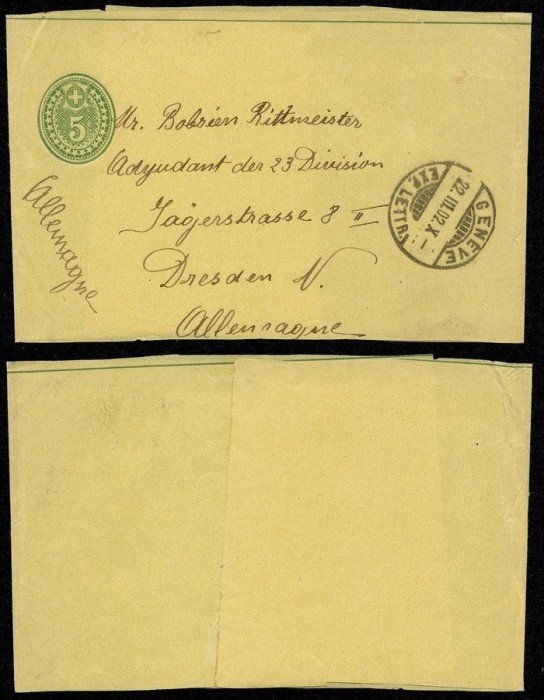 5
Mr. Bobsien Rittmeister
Adyudant der 23 Division
Jägerstrasse 8 II
Dresden N.
Allemagne
Allemagne
GENÈVE
22.III.02.X
EXP. LETTR.